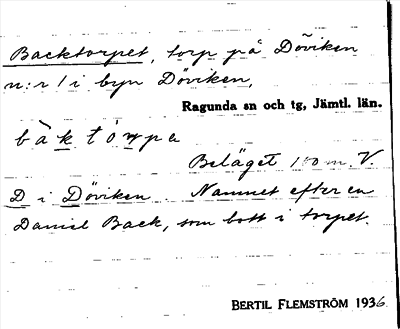 Backtorpet, torp på Döviken
n:r 1 i byn Döviken,
Ragunda sn och tg, Jämtl. län.
bàktórpa
Beläget 100 m. V.
D i Döviken. Namnet efter en
Daniel Back, som bott i torpet.
BERTIL FLEMSTRÖM 1936.